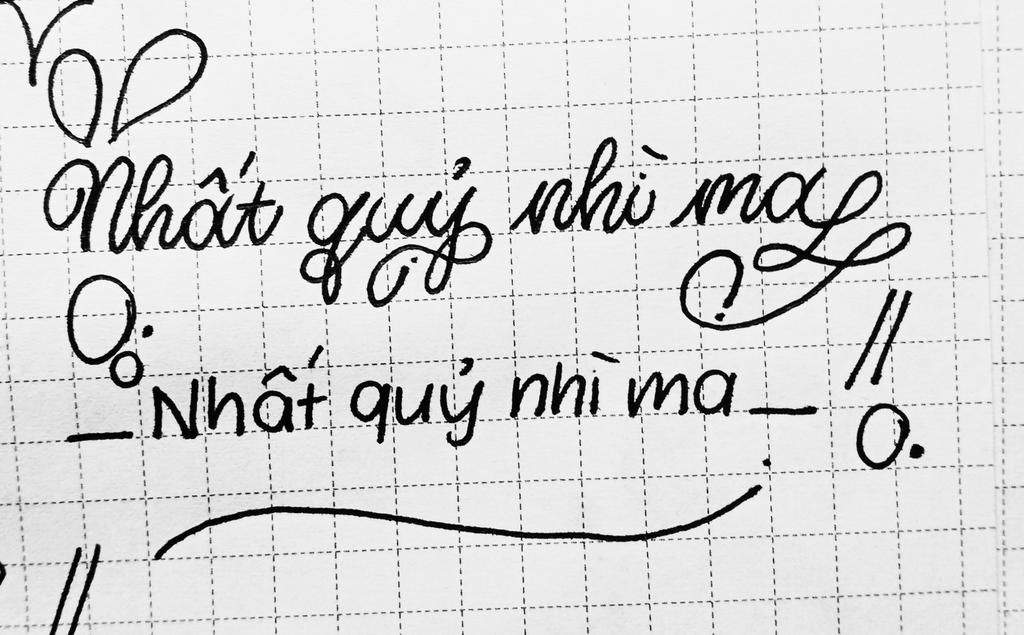 Nhất quỷ nhì ma
Nhất quỷ nhì ma